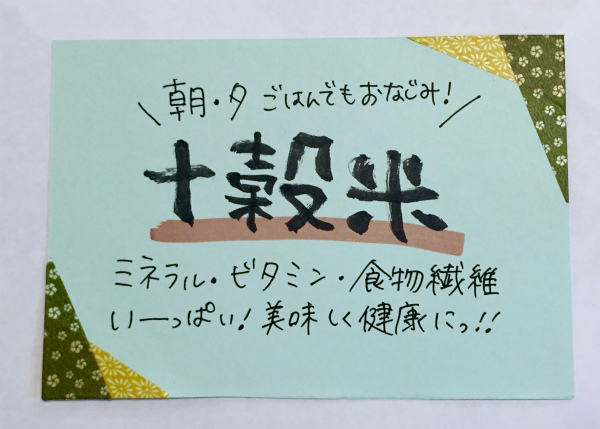 \ 朝・夕 ごはんでもおなじみ! /
十穀米
ミネラル・ビタミン・食物繊維
いーっぱい!美味しく健康にっ!!